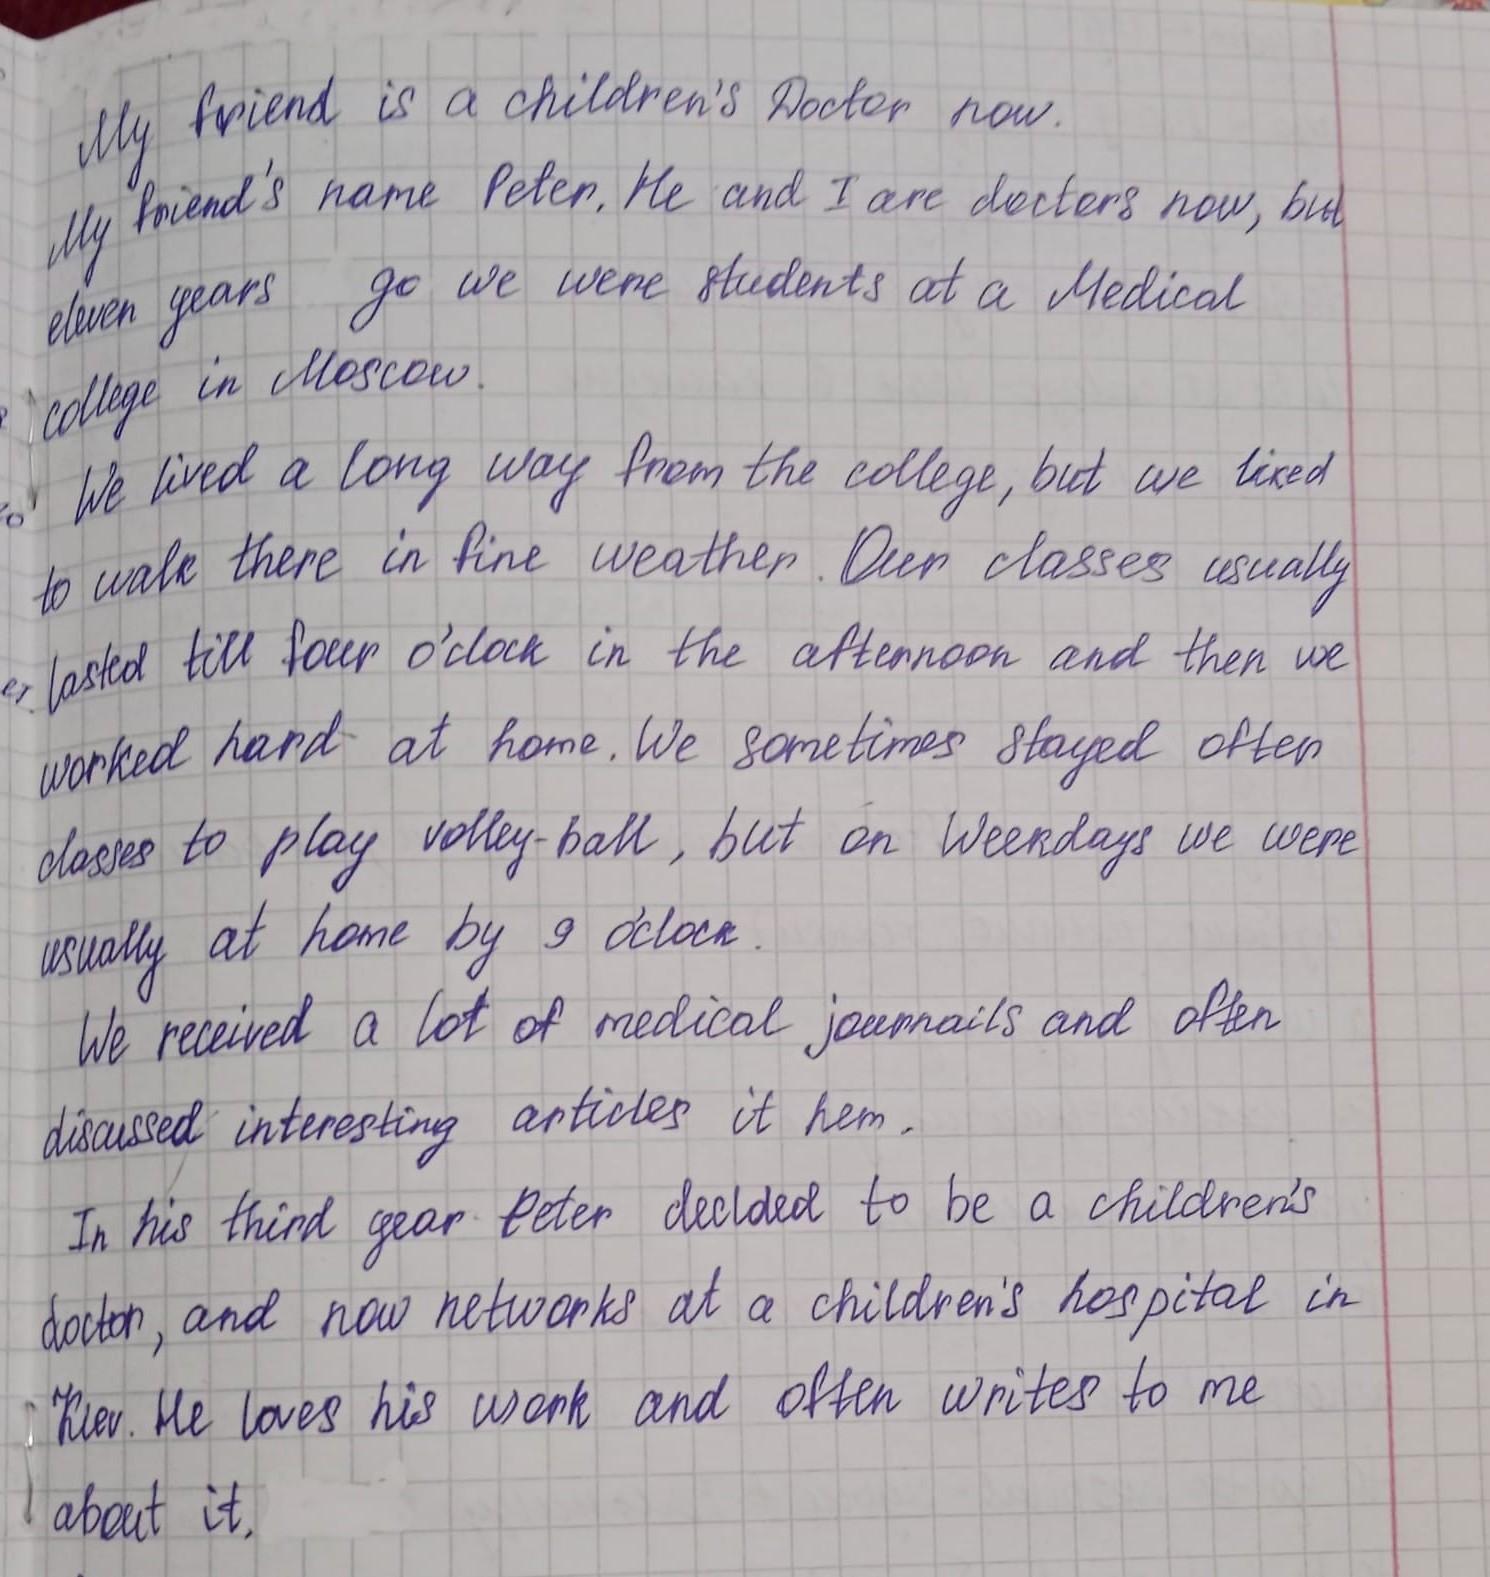 My friend is a children's Doctor now.
My friend's name Peter. He and I are doctors now, but
eleven years go we were students at a Medical
college in Moscow.
We lived a long way from the college, but we liked
to walk there in fine weather. Our classes usually
lasted till four o'clock in the afternoon and then we
worked hard at home. We sometimes stayed often
classes to play volley-ball, but on Weekdays we were
usually at home by 9 o'clock.
We received a lot of medical journails and often
discussed interesting articles it hem.
In his third year Peter decided to be a children's
doctor, and now networks at a children's hospital in
Kiev. He loves his work and often writes to me
about it.